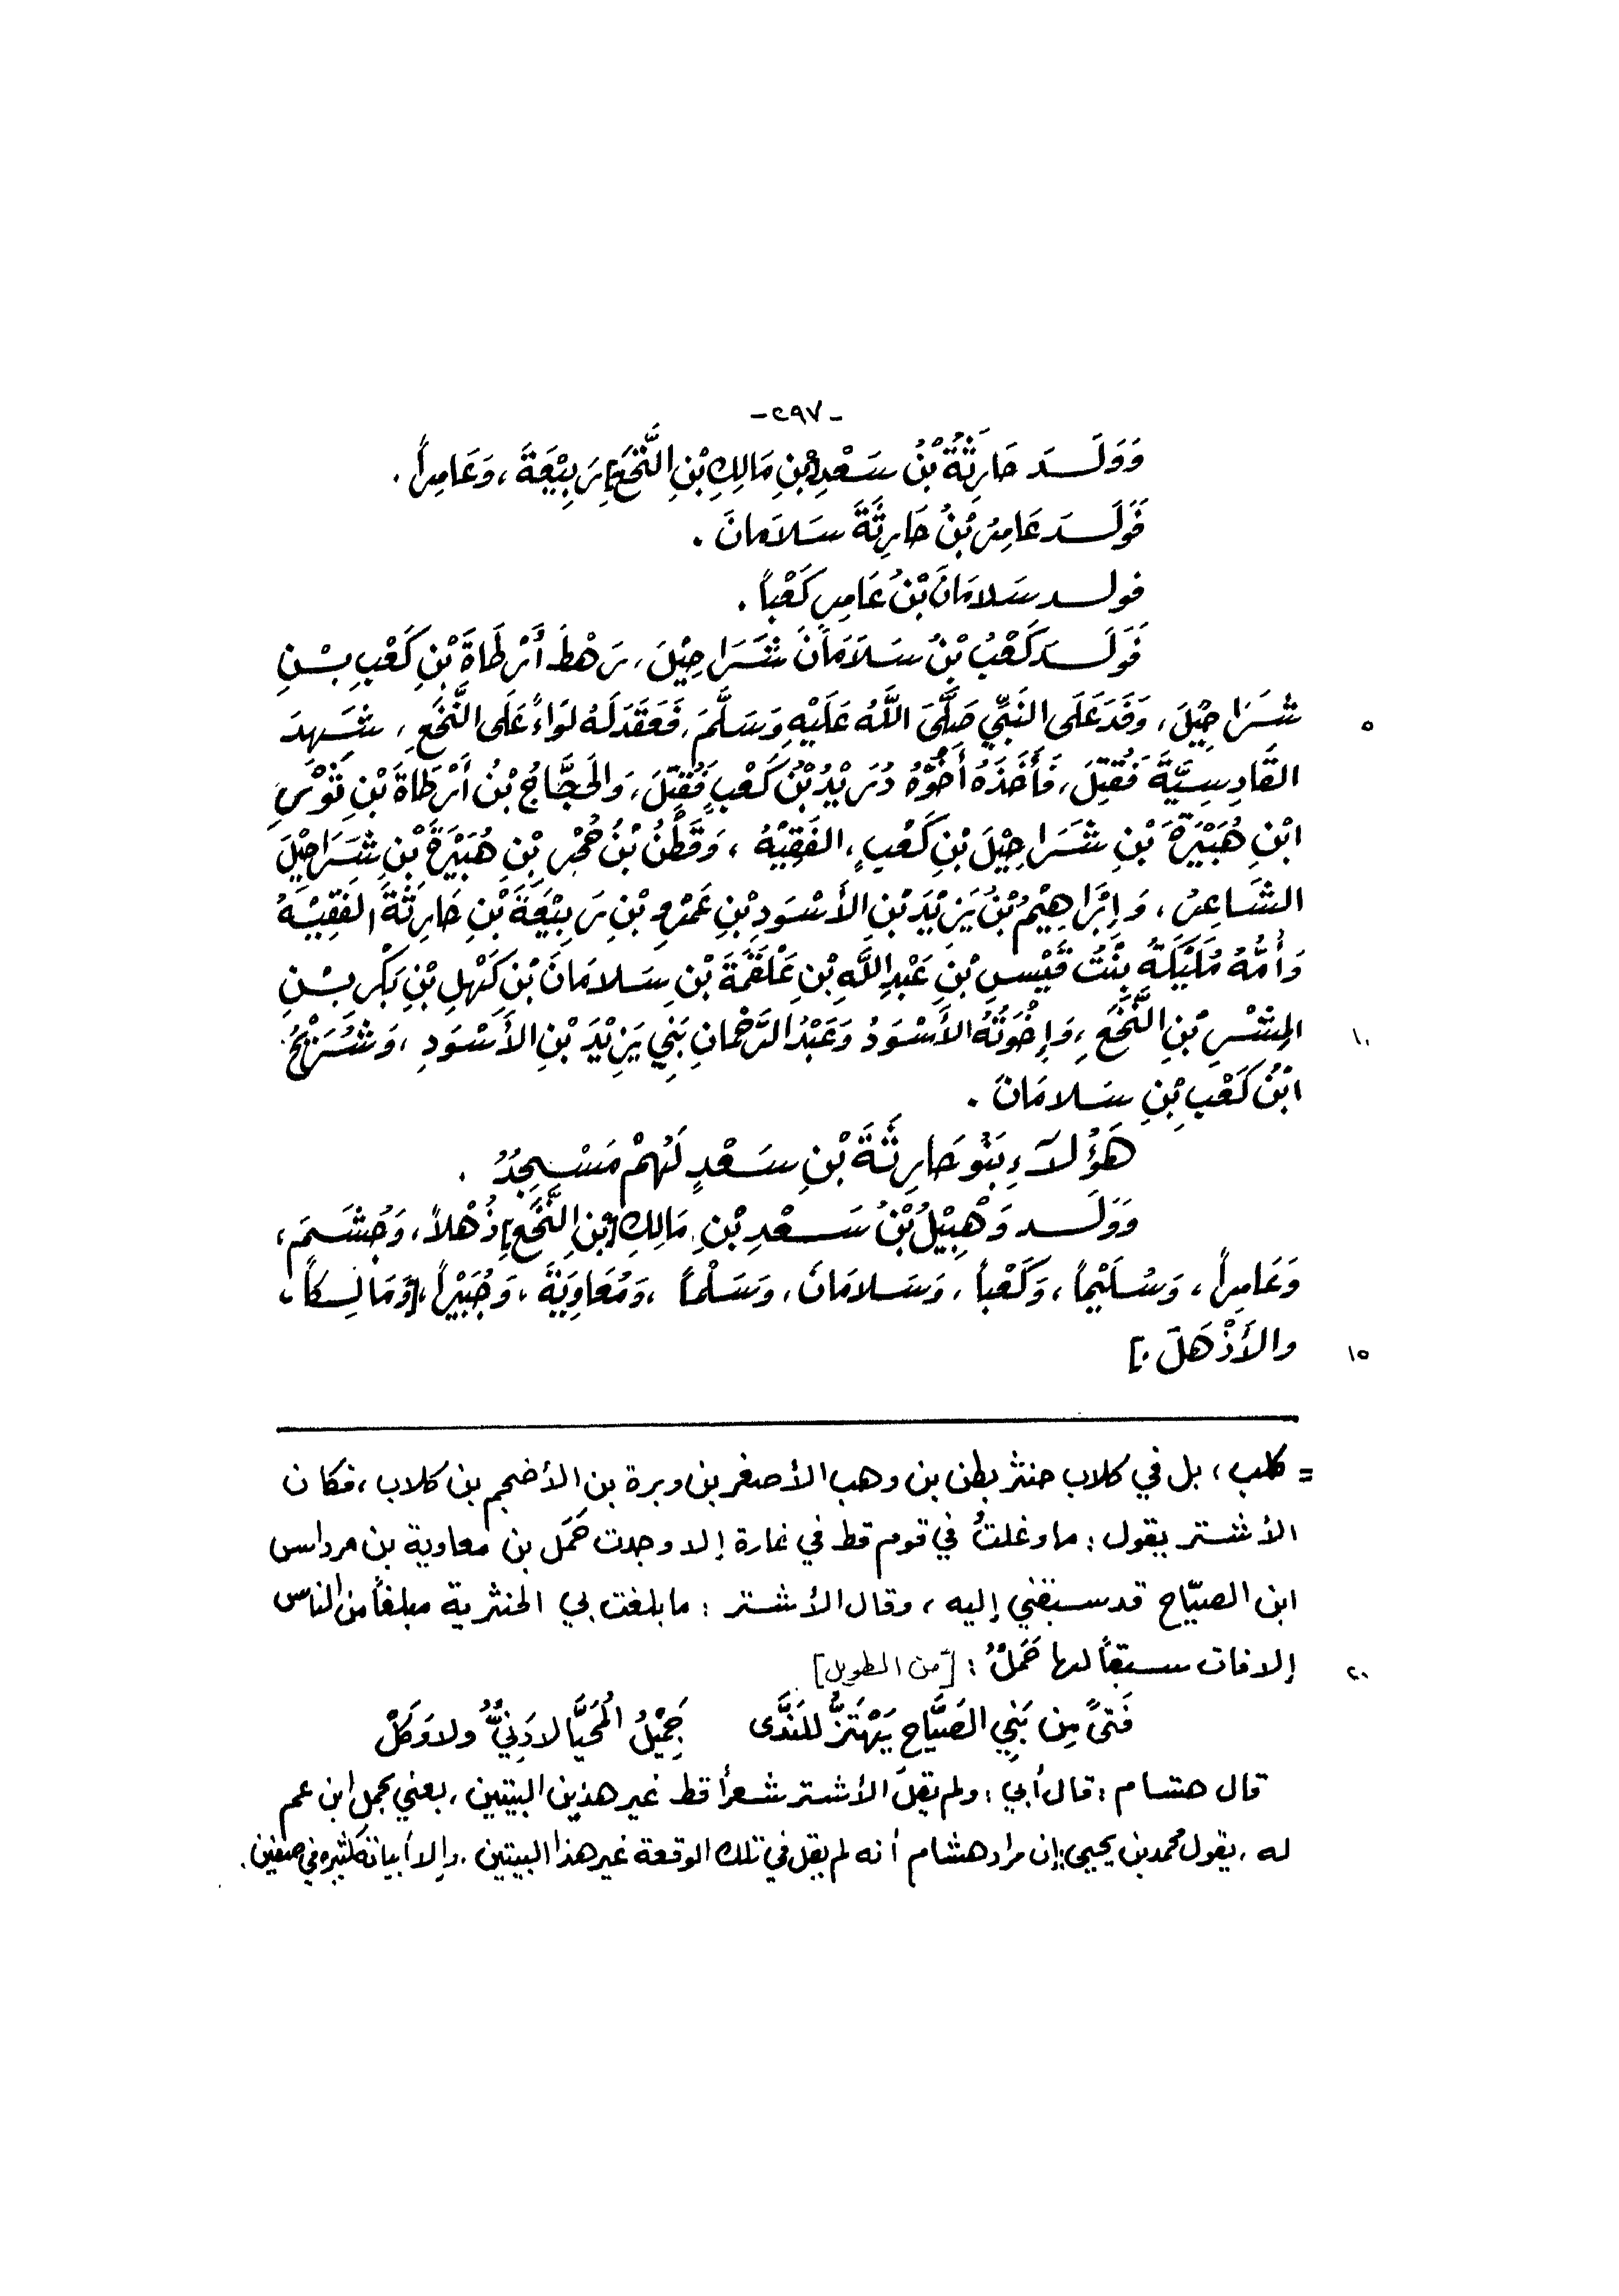 -٢٩٧-
وَوَلَـدَ حَارِثَةُ بْنُ سَعْدِ [بْنِ مَالِكِ بْنِ النَّخَعِ] رَبِيْعَةَ، وَعَامِراً.
فَوَلَـدَ عَامِرُ بْنُ حَارِثَةَ سَلاَمانَ.
فولـد سَلامَانَ بْنُ عَامِرٍ كَعْباً.
فَوَلَـدَ كَعْبُ بْنُ سَلاَمَانَ شَرَاحِيْلَ، رَهْطَ أَرْطَاةَ بْنِ كَعْبِ بْـنِ
شَرَاحِيْلَ، وَفَدَ عَلَى النَبِّي صَلَّىَ اللَّهُ عَلَيْهِ وَسَلَّمَ، فَعَقَدَ لَهُ لوَاءً عَلَى النَّخَعِ، شَهِدَ
٥
القَادِسِيَّةَ فَقُتِلَ، فَأَخَذَهُ أَخُوْهُ دُرَيْدُ بْنُ كَعْبٍ فَقُتِلَ، وَالحَجَّاجُ بْنُ أَرْطَاةَ بْنِ ثَوْرِ
ابْنِ هُبَيْرَةَ بْنِ شَرَاحِيْلَ بْنِ كَعْبٍ، الفَقِيْهُ، وَقَطْنُ بْنُ حُجْرِ بْنِ هُبَيْرَةَ بْنِ شَرَاحِيْلَ
الشَاعِرُ، وَإِبْرَاهِيْمُ بْنُ يَزِيْدَ بْنِ الأَسْوَدِ بْنِ عَمْرِو بْنِ رَبِيْعَةَ بْنِ حَارِثَةَ الفَقِيْـهُ
وَأُمُّهُ مُلَيْكَةُ بِنْتُ قَيْسِ بْنِ عَبْدِ اللَّهِ بْنِ عَلْقَمَةَ بْنِ سَلامَانَ بْنِ كَهْلِ بْنِ بَكْرِ بْـنِ
المِنْشَرِ بْنِ النَّخَعِ، وَإِخْوَتُهُ الأَسْوَدُ وَعَبْدُ الرَّحْمانِ بَنِي يَزِيْدَ بْنِ الأَسْوَدِ، وَشُرَيْحُ
١٠
ابْنُ كَعْبِ بْنِ سَلامَانَ.
هَؤُلآءِ بَنُو حَارِثَةَ بْنِ سَعْدٍ لَهُمْ مَسْجِدٌ.
وَوَلَـد وَهْبِيْلُ بْنُ سَعْدِ بْنِ مَالِكِ [بْنِ النَّخَعِ] ذُهْلاً، وَجُشَمَ،
وَعَامِراً، وَسُلَيْماً، وَكَعْباً، وَسَلامَانَ، وَسَلْماً، وَمُعَاوِيَةَ، وَجُبَيْراً، [وَمَالِكاً،
والأَذْهَلَ.]
١٥
= كلب، بل في كلاب حنثر بطن بن وهب الأصغر بن وبرة بن الأضجم بن كلاب، فكان
الأشتر يقول: ما وغلتُ في قوم قط في غارة إلا وجدت حَمَل بن معاوية بن مرداس
ابن الصيّاح قد سبقني إليه، وقال الأشتر: ما بلغت بي الحنثرية مبلغاً من الناس
إلا فات سبقاً لها حَمَلْ: [من الطويل]
٢٠
فَتىً مِن بَنِي الصَيَّاحِ يَهْتَزُّ للنَدَّى جَمِيْلُ المُحَيَّا لا دَنِيٌّ ولا وَكَلْ
قال هشام: قال أبي: ولم يقل الأشتر شعراً قط غير هذين البيتين، يعني بحمل ابن عم
له، يقول محمد بن يحيى: إن مراد هشام أنه لم يقل في تلك الوقعة غير هذا البيتين، وإلا أبياته كثيره في صفين.